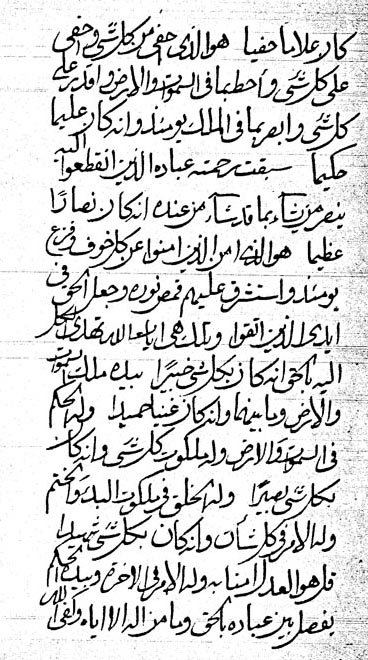 كان علاما حفيا هو الذي احفى من كل شي واخفى
على كل شي و احطها فى السموات والارض و اقدر على
كل شي و ابصر بما فى الملك يومئذ وانه كان عليما
حكيما سبقت رحمته عباده الذين انقطعوا اليه
ينصر من يشاء بما قد شاء من عنده انه كان نصارا
عظيما هو الذي امن الذين امنوا عن كل خوف و فزع
يومئذ و استشرق عليهم قمص نوره وجعل الحق فى
ايدى الذين اتقوا وتلك هى ايات الله يهدى الكل
اليه بالحق انه كان بكل شي خبيرا بيده ملك السموات
والارض وما بينهما وانه كان غنيا حميدا وله الحكم
فى السموات والارض وله ملكوت كل شي وانه كان
بكل شي بصيرا وله الخلق فى ملكوت البدء والختم
وله الامر فى كل شأن وانه كان بكل شي شهيدا
قل هو العدل امنا به وله الامر فى الاخرة وبيده الحكم
يفصل بين عباده بالحق وما من اله الا اياه وكفى الله